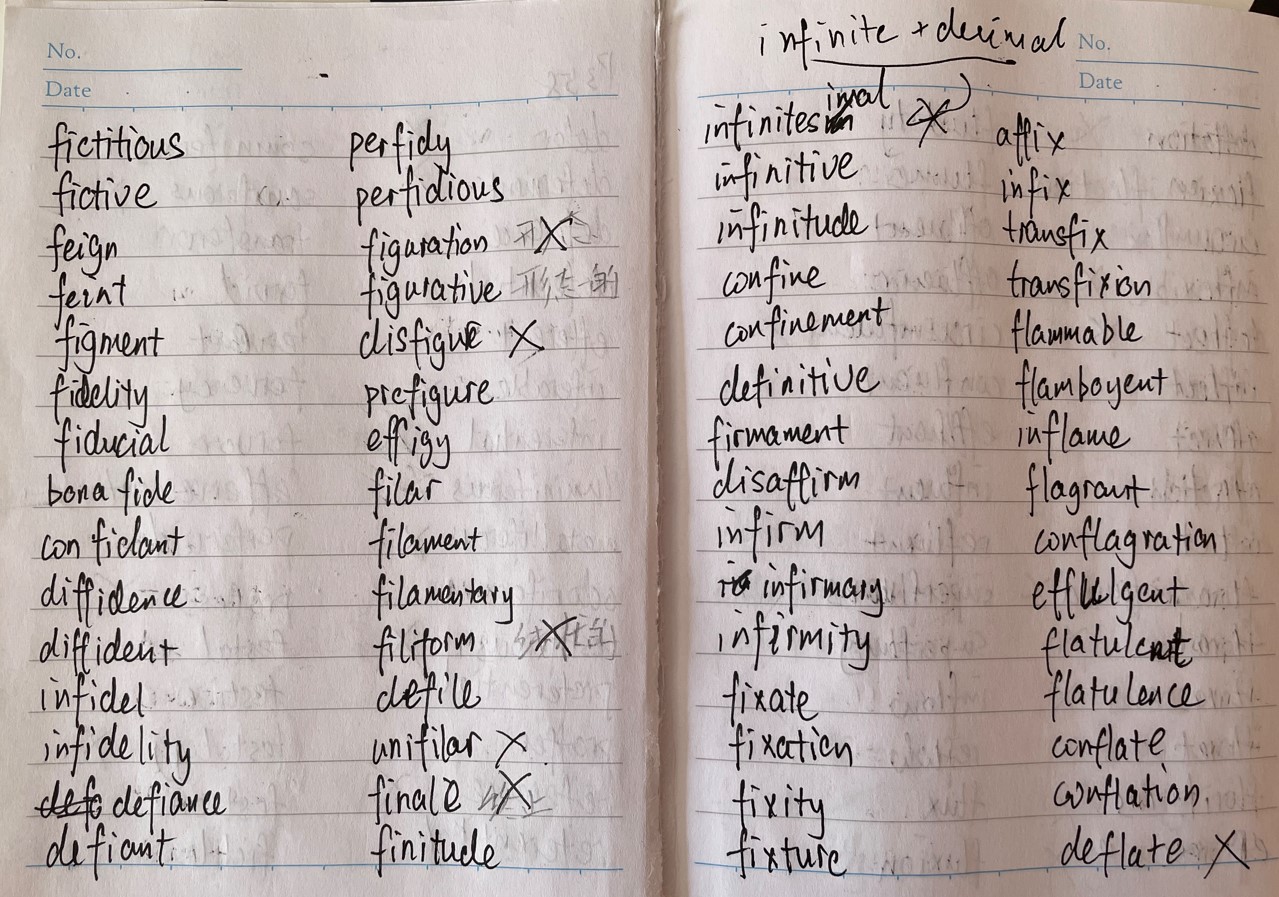 No.
Date
fictitious
fictive
feign
feint
figment
fidelity
fiducial
bona fide
confidant
diffidence
diffident
infidel
infidelity
defiance
defiant
perfidy
perfidious
figuration
figurative 形态的
disfigure
prefigure
effigy
filar
filament
filamentary
filiform
defile
unifilar
finale
finitude
infinite + decimal
No.
Date
infinitesimal
infinitive
infinitude
confine
confinement
definitive
firmament
disaffirm
infirm
infirmary
infirmity
fixate
fixation
fixity
fixture
affix
infix
transfix
transfixion
flammable
flamboyent
inflame
flagrant
conflagration
effulgent
flatulent
flatulence
conflate
conflation
deflate